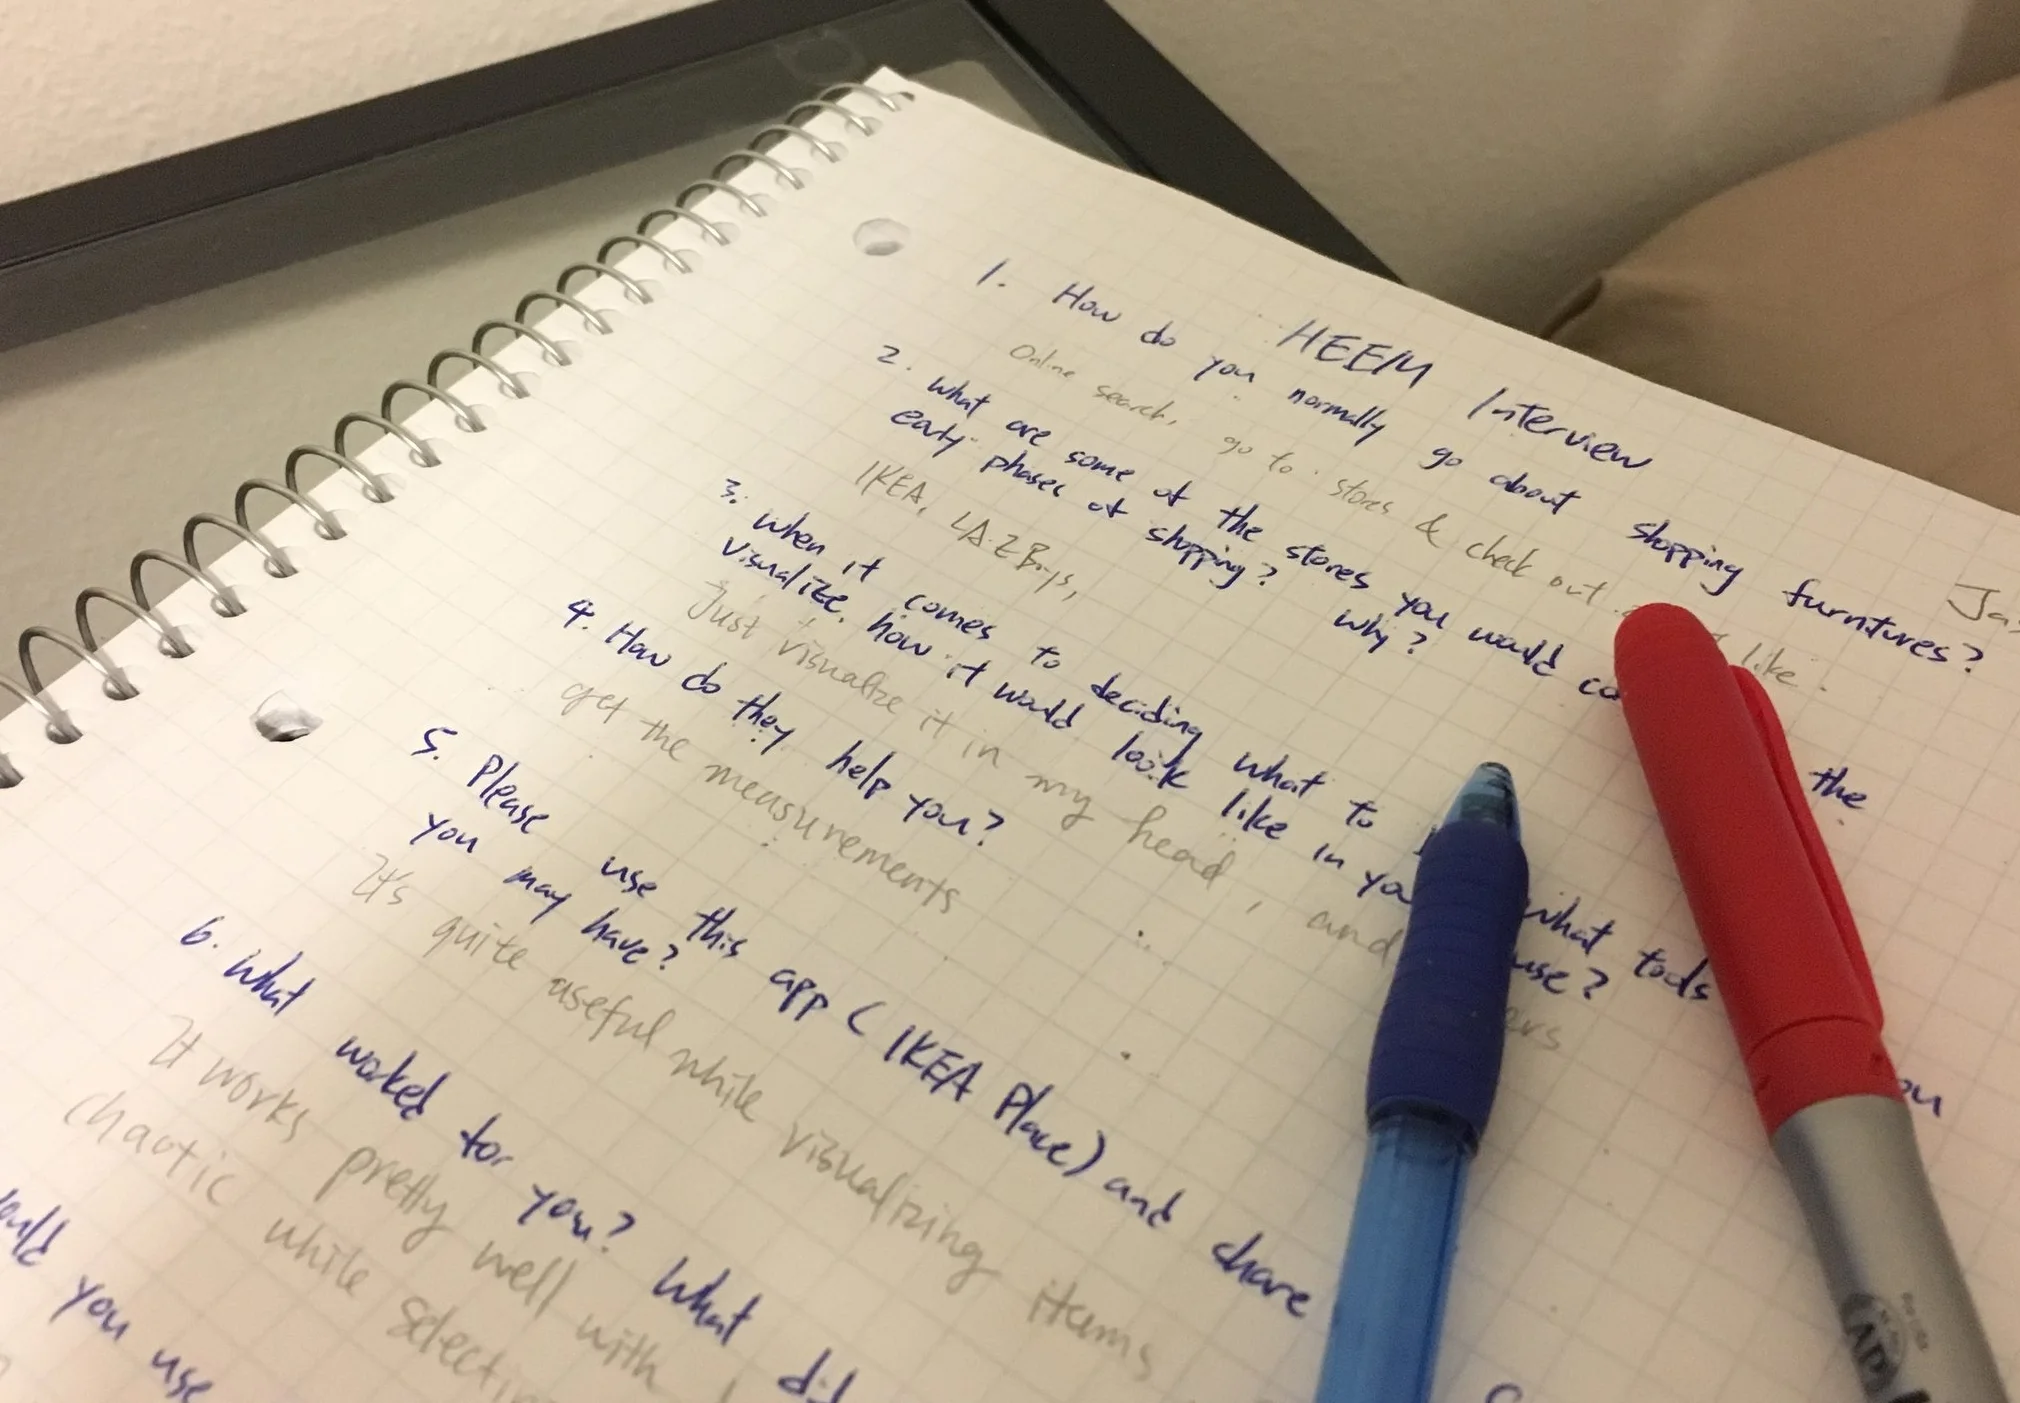 HEEM Interview
Jas
1. How do you normally go about shopping furnitures?
Online search, go to stores & check out like.
2. what are some of the stores you would co the
early phases of shopping? why?
IKEA, LA-Z Boys,
3. when it comes to deciding what to what tools
visualize, how it would look like in you use?
Just visualize it in my head, and ers
4. How do they help you?
get the measurements
5. Please use this app (IKEA Place) and share ou
you may have?
It's quite useful while visualizing items
6. what worked for you? what did
It works pretty well with
chaotic while selectin
ould you use